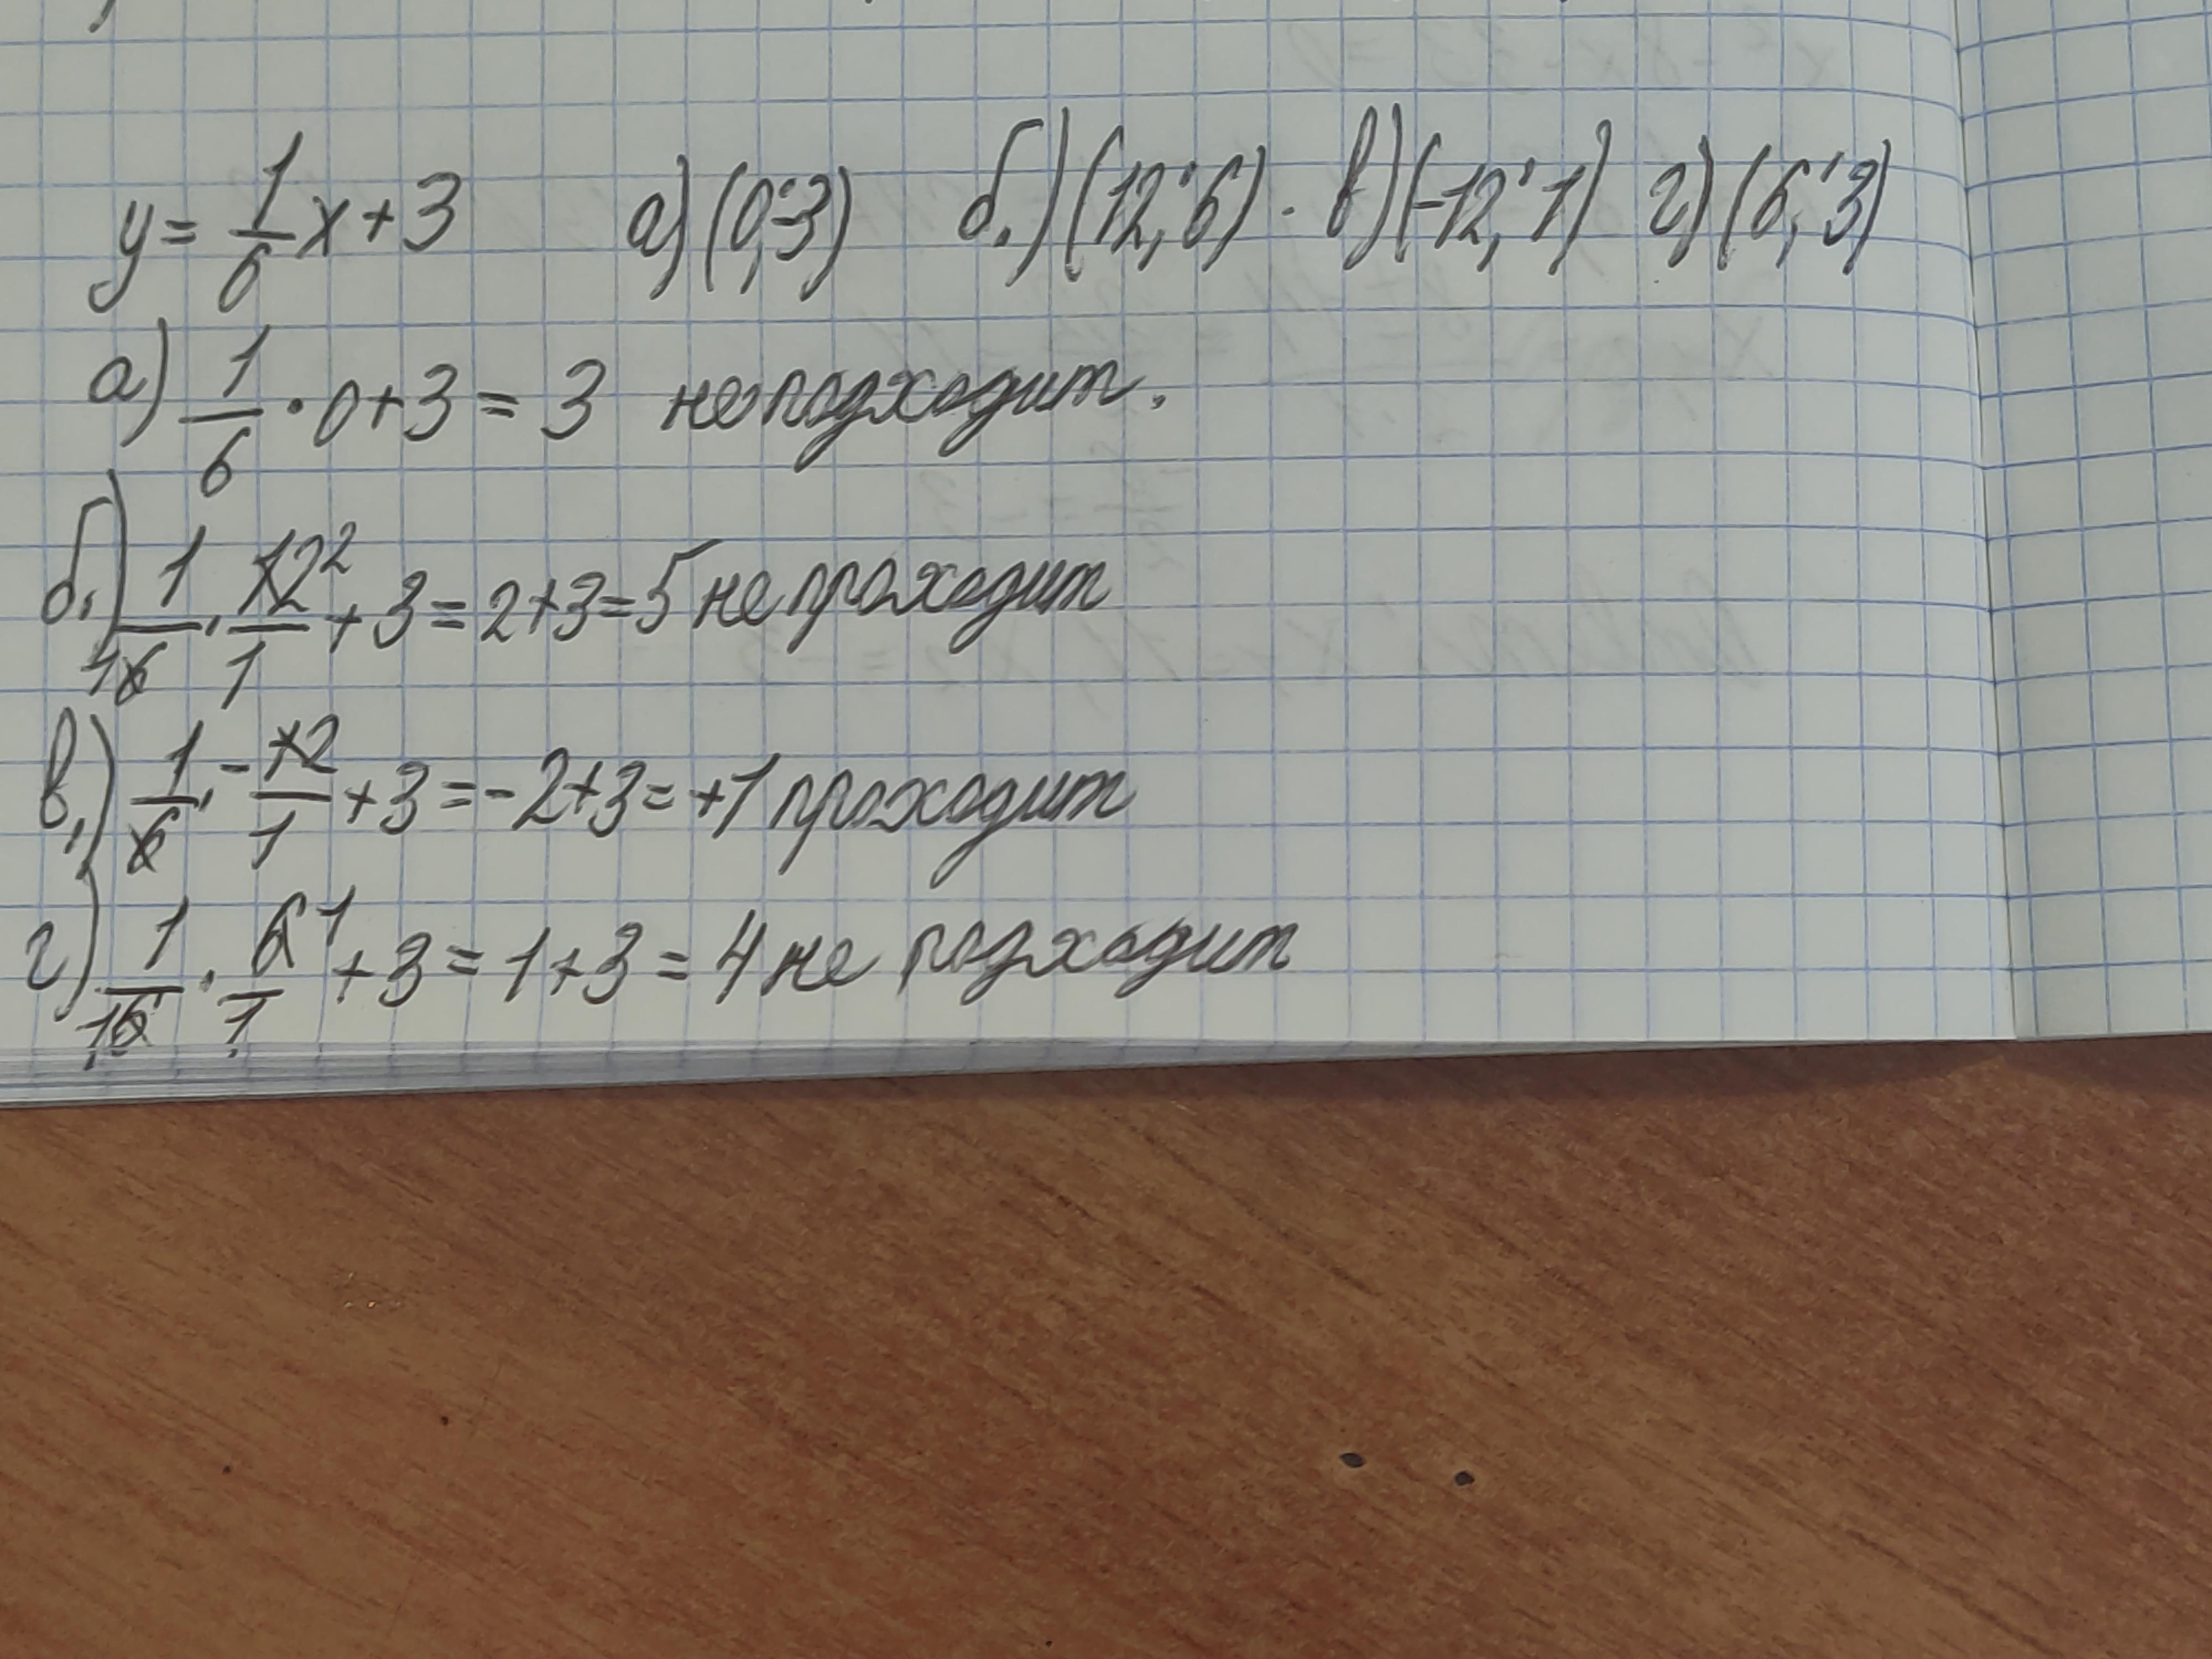 y = 1/6 x + 3 а) (0;-3) б.) (12; 6). в) (-12; 1) г) (6; 3)
а) 1/6 · 0 + 3 = 3 не подходит.
б.) 1/6 · 12/1 + 3 = 2 + 3 = 5 не проходит
в.) 1/6 · - 12/1 + 3 = - 2 + 3 = +1 проходит
г) 1/6 · 6/1 + 3 = 1 + 3 = 4 не подходит